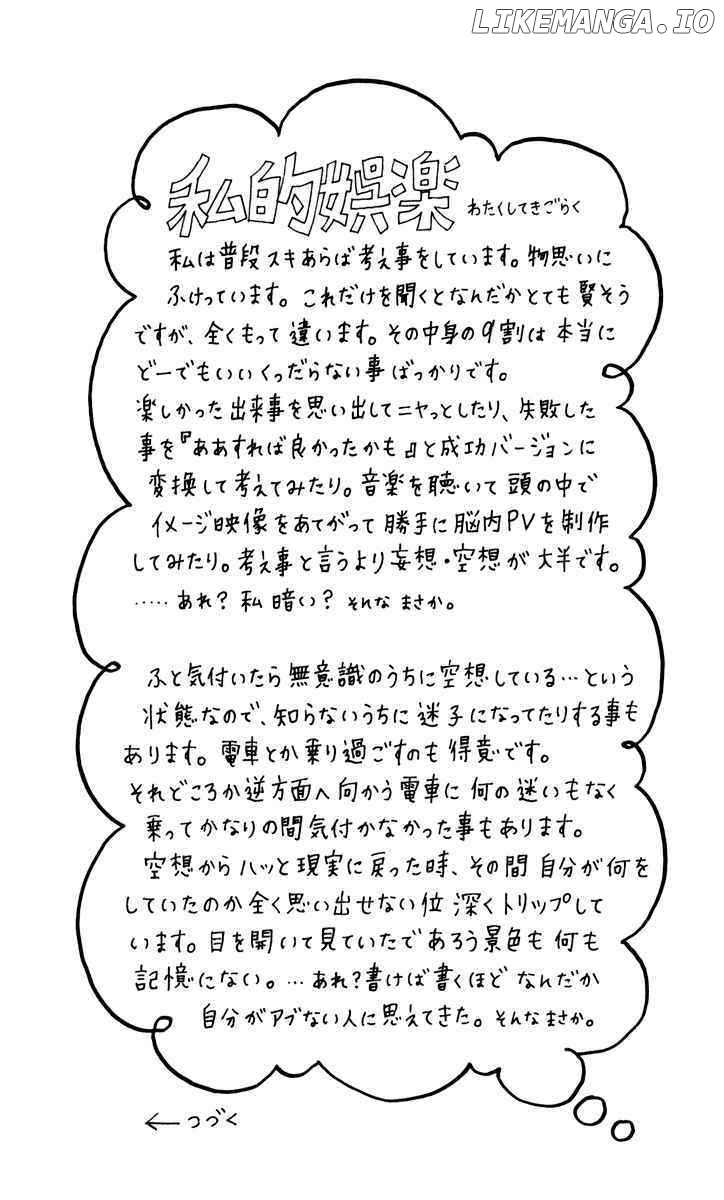 LIKEMANGA.IO
私的娯楽 わたくしてきごらく
私は普段スキあらば考え事をしています。物思いに
ふけっています。これだけを聞くとなんだかとても賢そう
ですが、全くもって違います。その中身の9割は本当に
どーでもいいくっだらない事ばっかりです。
楽しかった出来事を思い出してニヤっとしたり、失敗した
事を『ああすれば良かったかも』と成功バージョンに
変換して考えてみたり。音楽を聴いて頭の中で
イメージ映像をあてがって勝手に脳内PVを制作
してみたり。考え事と言うより妄想・空想が大半です。
……あれ?私暗い?そんなまさか。
ふと気付いたら無意識のうちに空想している…という
状態なので、知らないうちに迷子になってたりする事も
あります。電車とか乗り過ごすのも得意です。
それどころか逆方面へ向かう電車に何の迷いもなく
乗ってかなりの間気付かなかった事もあります。
空想からハッと現実に戻った時、その間自分が何を
していたのか全く思い出せない位深くトリップして
います。目を開いて見ていたであろう景色も何も
記憶にない。…あれ?書けば書くほどなんだか
自分がアブない人に思えてきた。そんなまさか。
←つづく